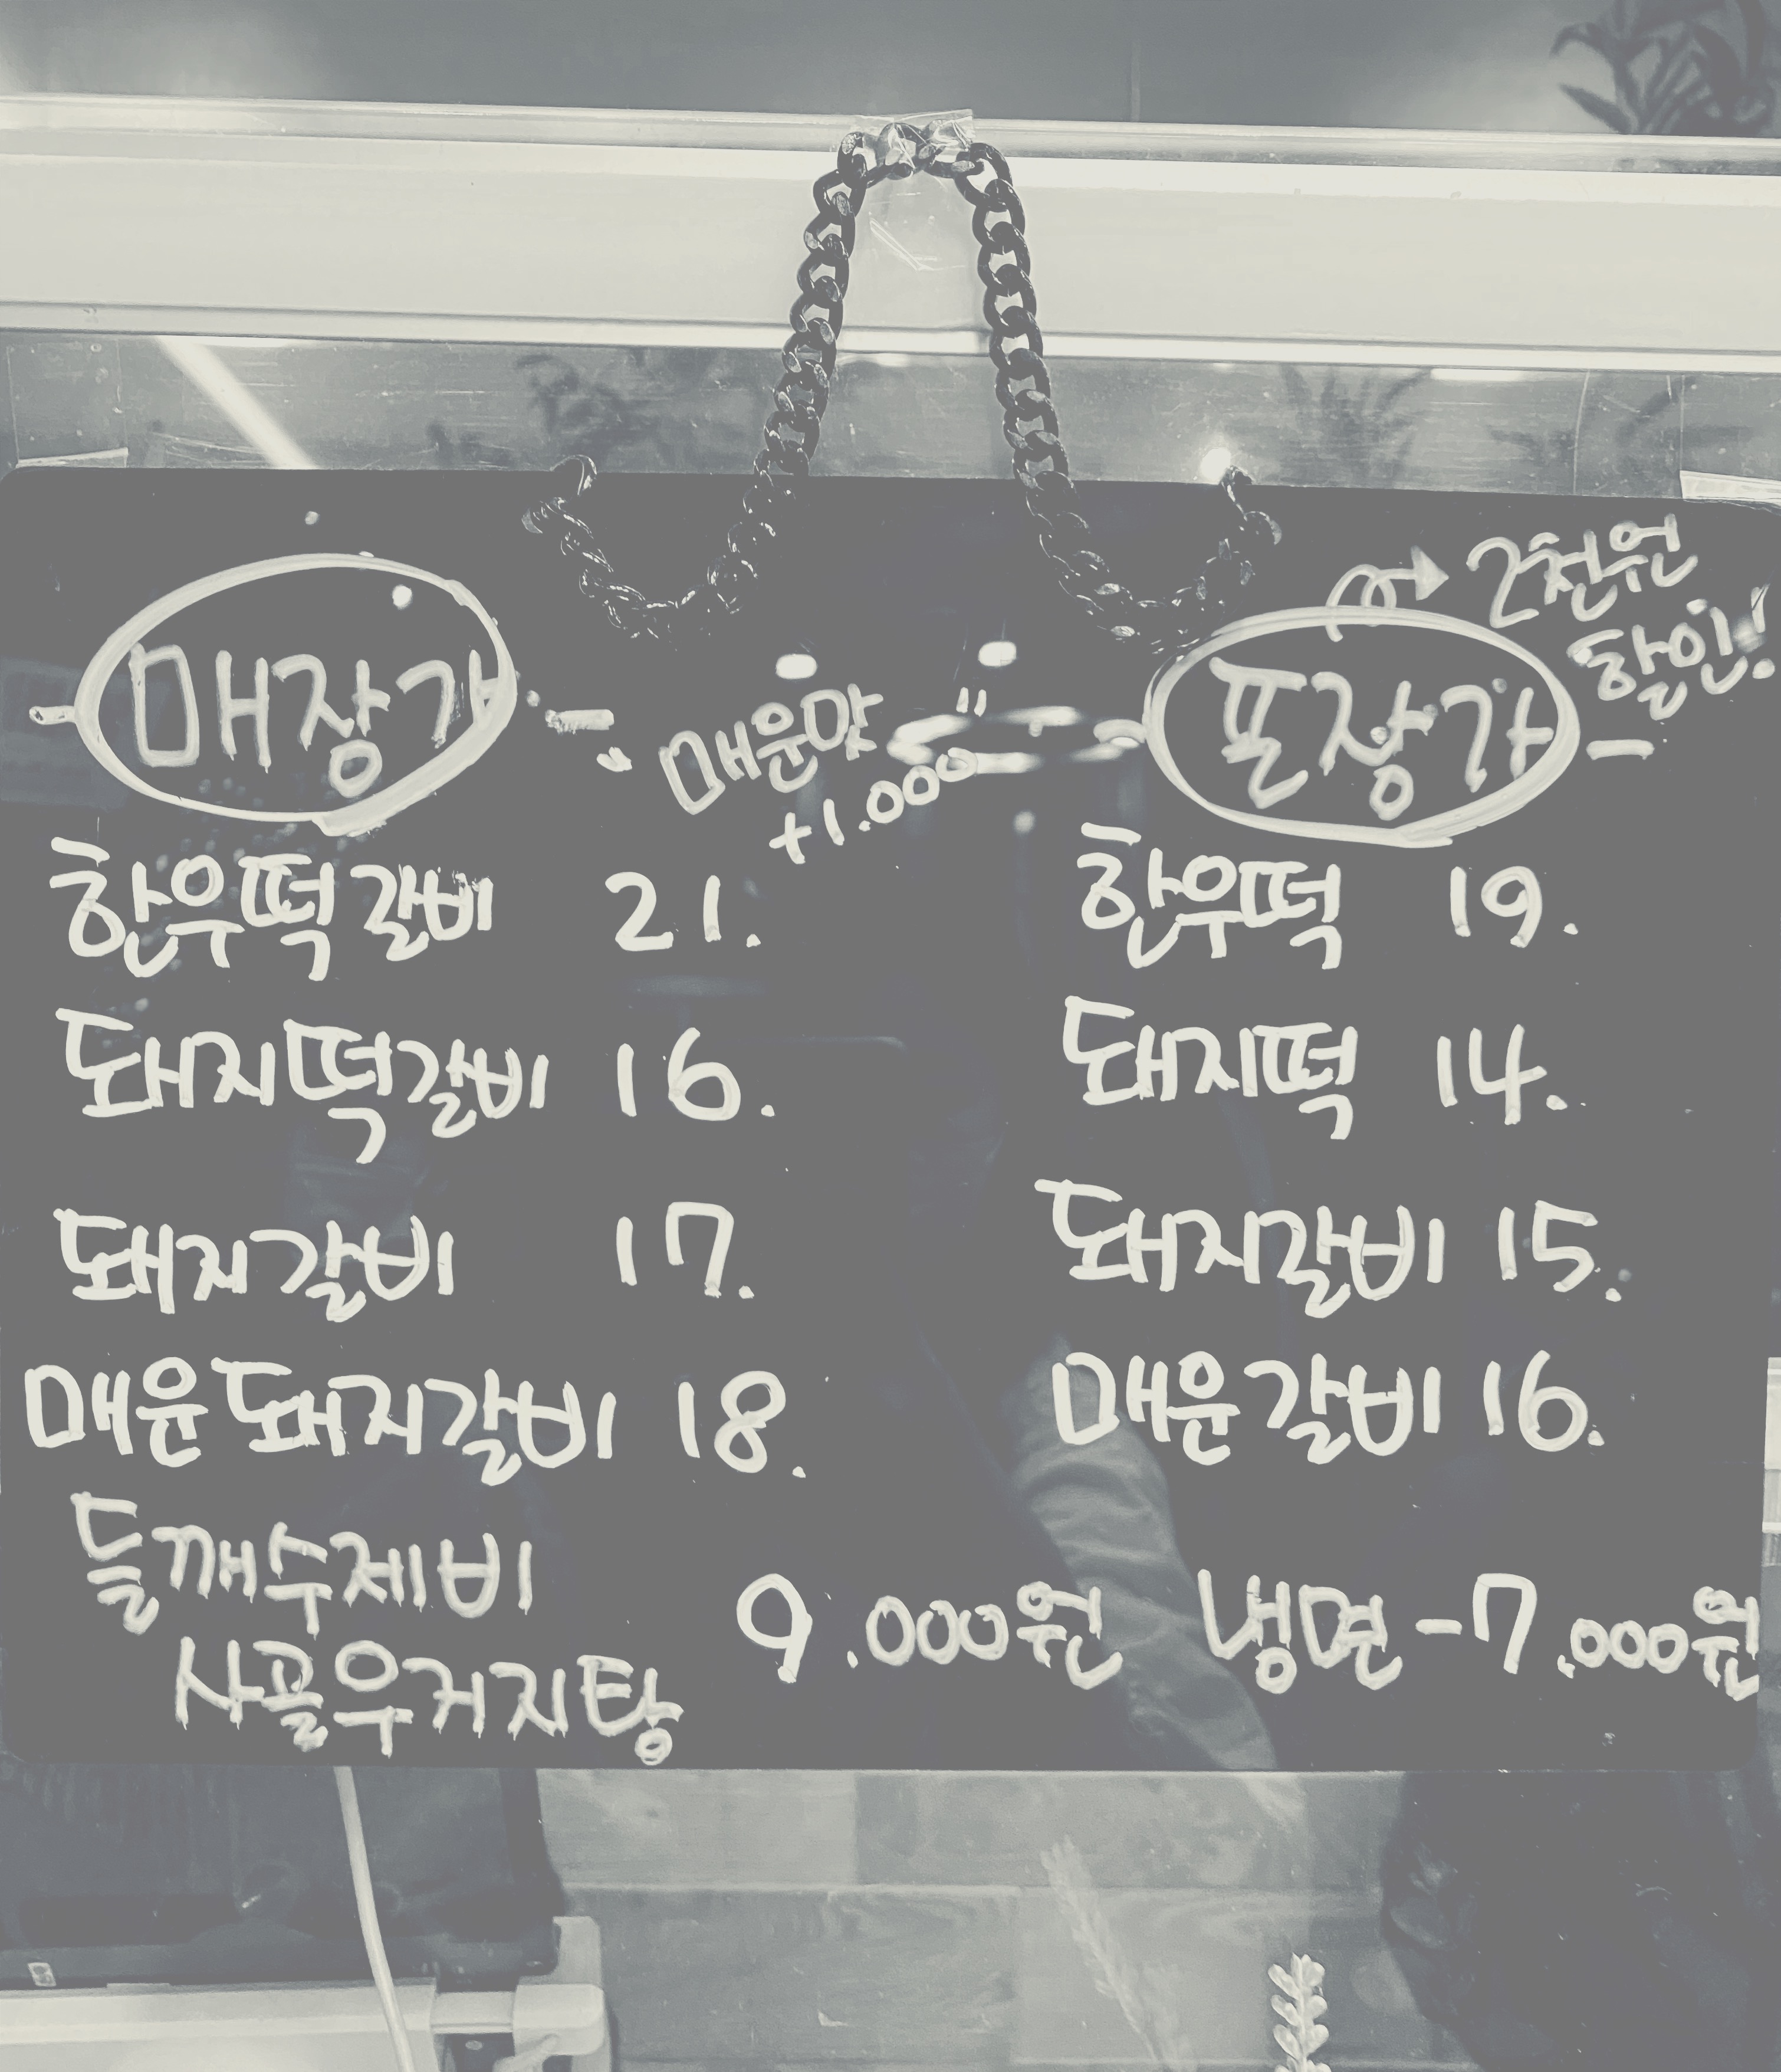 매장가
매운맛
+1.000
포장가
2천원
할인!
한우떡갈비 21.
돼지떡갈비 16.
돼지갈비 17.
매운돼지갈비 18.
한우떡 19.
돼지떡 14.
돼지갈비 15.
매운갈비 16.
들깨수제비
사골우거지탕
9.000원
냉면 - 7.000원